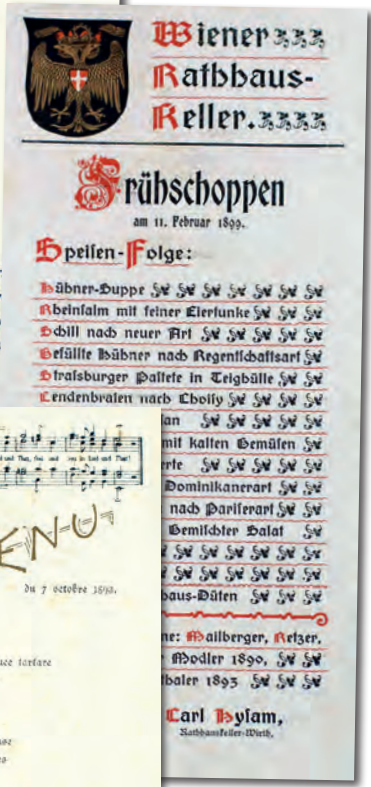 Wiener
Rathhaus-
Keller.
Frühschoppen
am 11. Februar 1899.
Speisen-Folge:
Hühner-Suppe
Rheinsalm mit feiner Eiertunke
Schill nach neuer Art
Gefüllte Hühner nach Regentschaftsart
Straßburger Pastete in Teighülle
Lendenbraten nach Choisy
mit kalten Gemüsen
Dominikanerart
nach Pariserart
Gemischter Salat
haus-Düten
ne: Mailberger, Retzer,
Modler 1890,
thaler 1893
Carl Hysam,
Rathhauskeller-Wirth.
ENU
du 7 octobre 1890.
tartare